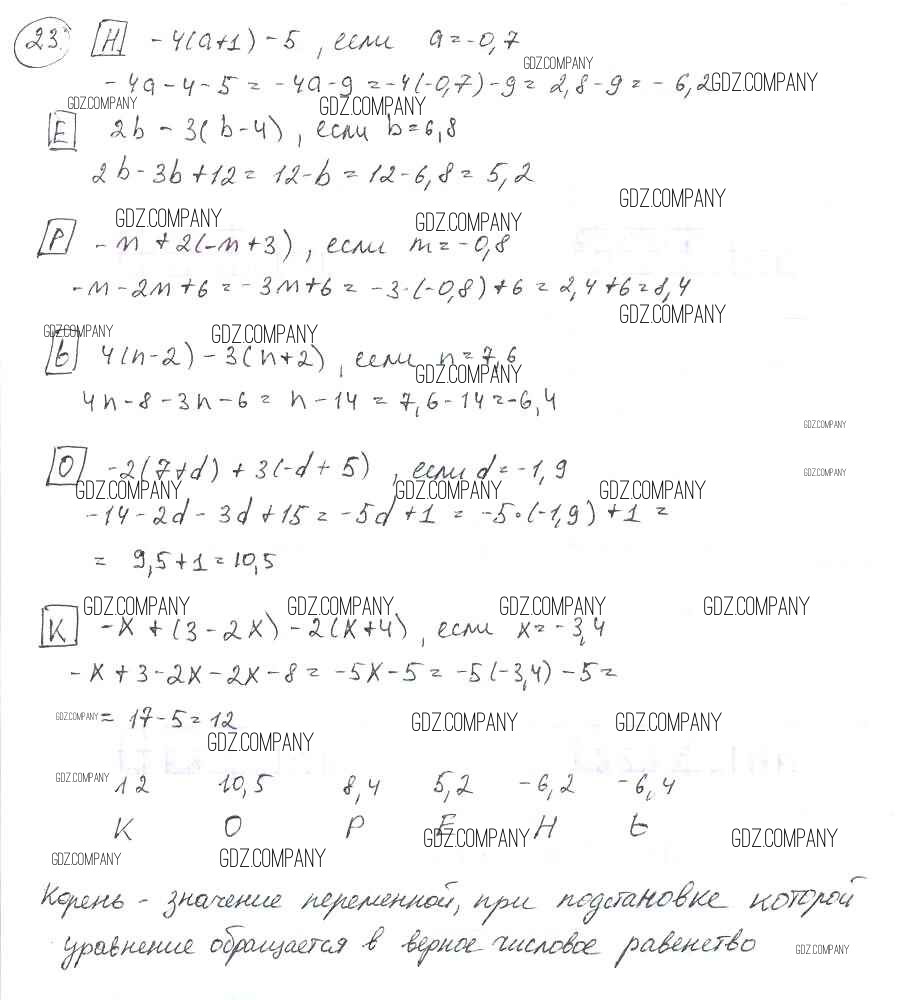 23. Н -4(a+1)-5, если a=-0,7
GDZ.COMPANY
-4a-4-5=-4a-9=-4(-0,7)-9=2,8-9=-6,2 GDZ.COMPANY
GDZ.COMPANY GDZ.COMPANY
Е 2b-3(b-4), если b=6,8
2b-3b+12=12-b=12-6,8=5,2
GDZ.COMPANY
GDZ.COMPANY GDZ.COMPANY
Р -m+2(-m+3), если m=-0,8
-m-2m+6=-3m+6=-3·(-0,8)+6=2,4+6=8,4
GDZ.COMPANY
GDZ.COMPANY GDZ.COMPANY
Ь 4(n-2)-3(n+2), если n=7,6
GDZ.COMPANY
4n-8-3n-6=n-14=7,6-14=-6,4
GDZ.COMPANY
О -2(7+d)+3(-d+5), если d=-1,9 GDZ.COMPANY
GDZ.COMPANY GDZ.COMPANY GDZ.COMPANY
-14-2d-3d+15=-5d+1=-5·(-1,9)+1=
=9,5+1=10,5
GDZ.COMPANY GDZ.COMPANY GDZ.COMPANY GDZ.COMPANY
К -x+(3-2x)-2(x+4), если x=-3,4
-x+3-2x-2x-8=-5x-5=-5(-3,4)-5=
GDZ.COMPANY =17-5=12 GDZ.COMPANY GDZ.COMPANY
GDZ.COMPANY
GDZ.COMPANY 12 10,5 8,4 5,2 -6,2 -6,4
К О Р Е Н Ь
GDZ.COMPANY GDZ.COMPANY
GDZ.COMPANY GDZ.COMPANY
Корень - значение переменной, при подстановке которой
уравнение обращается в верное числовое равенство GDZ.COMPANY